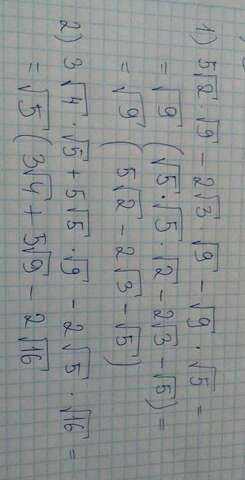 1) 5√2 · √9 − 2√3 √9 − √9 · √5 =
= √9 (√5 · √5 · √2 − 2√3 − √5) =
= √9 (5√2 − 2√3 − √5)
2) 3√4 · √5 + 5√5 · √9 − 2√5 · √16 =
= √5 (3√4 + 5√9 − 2√16